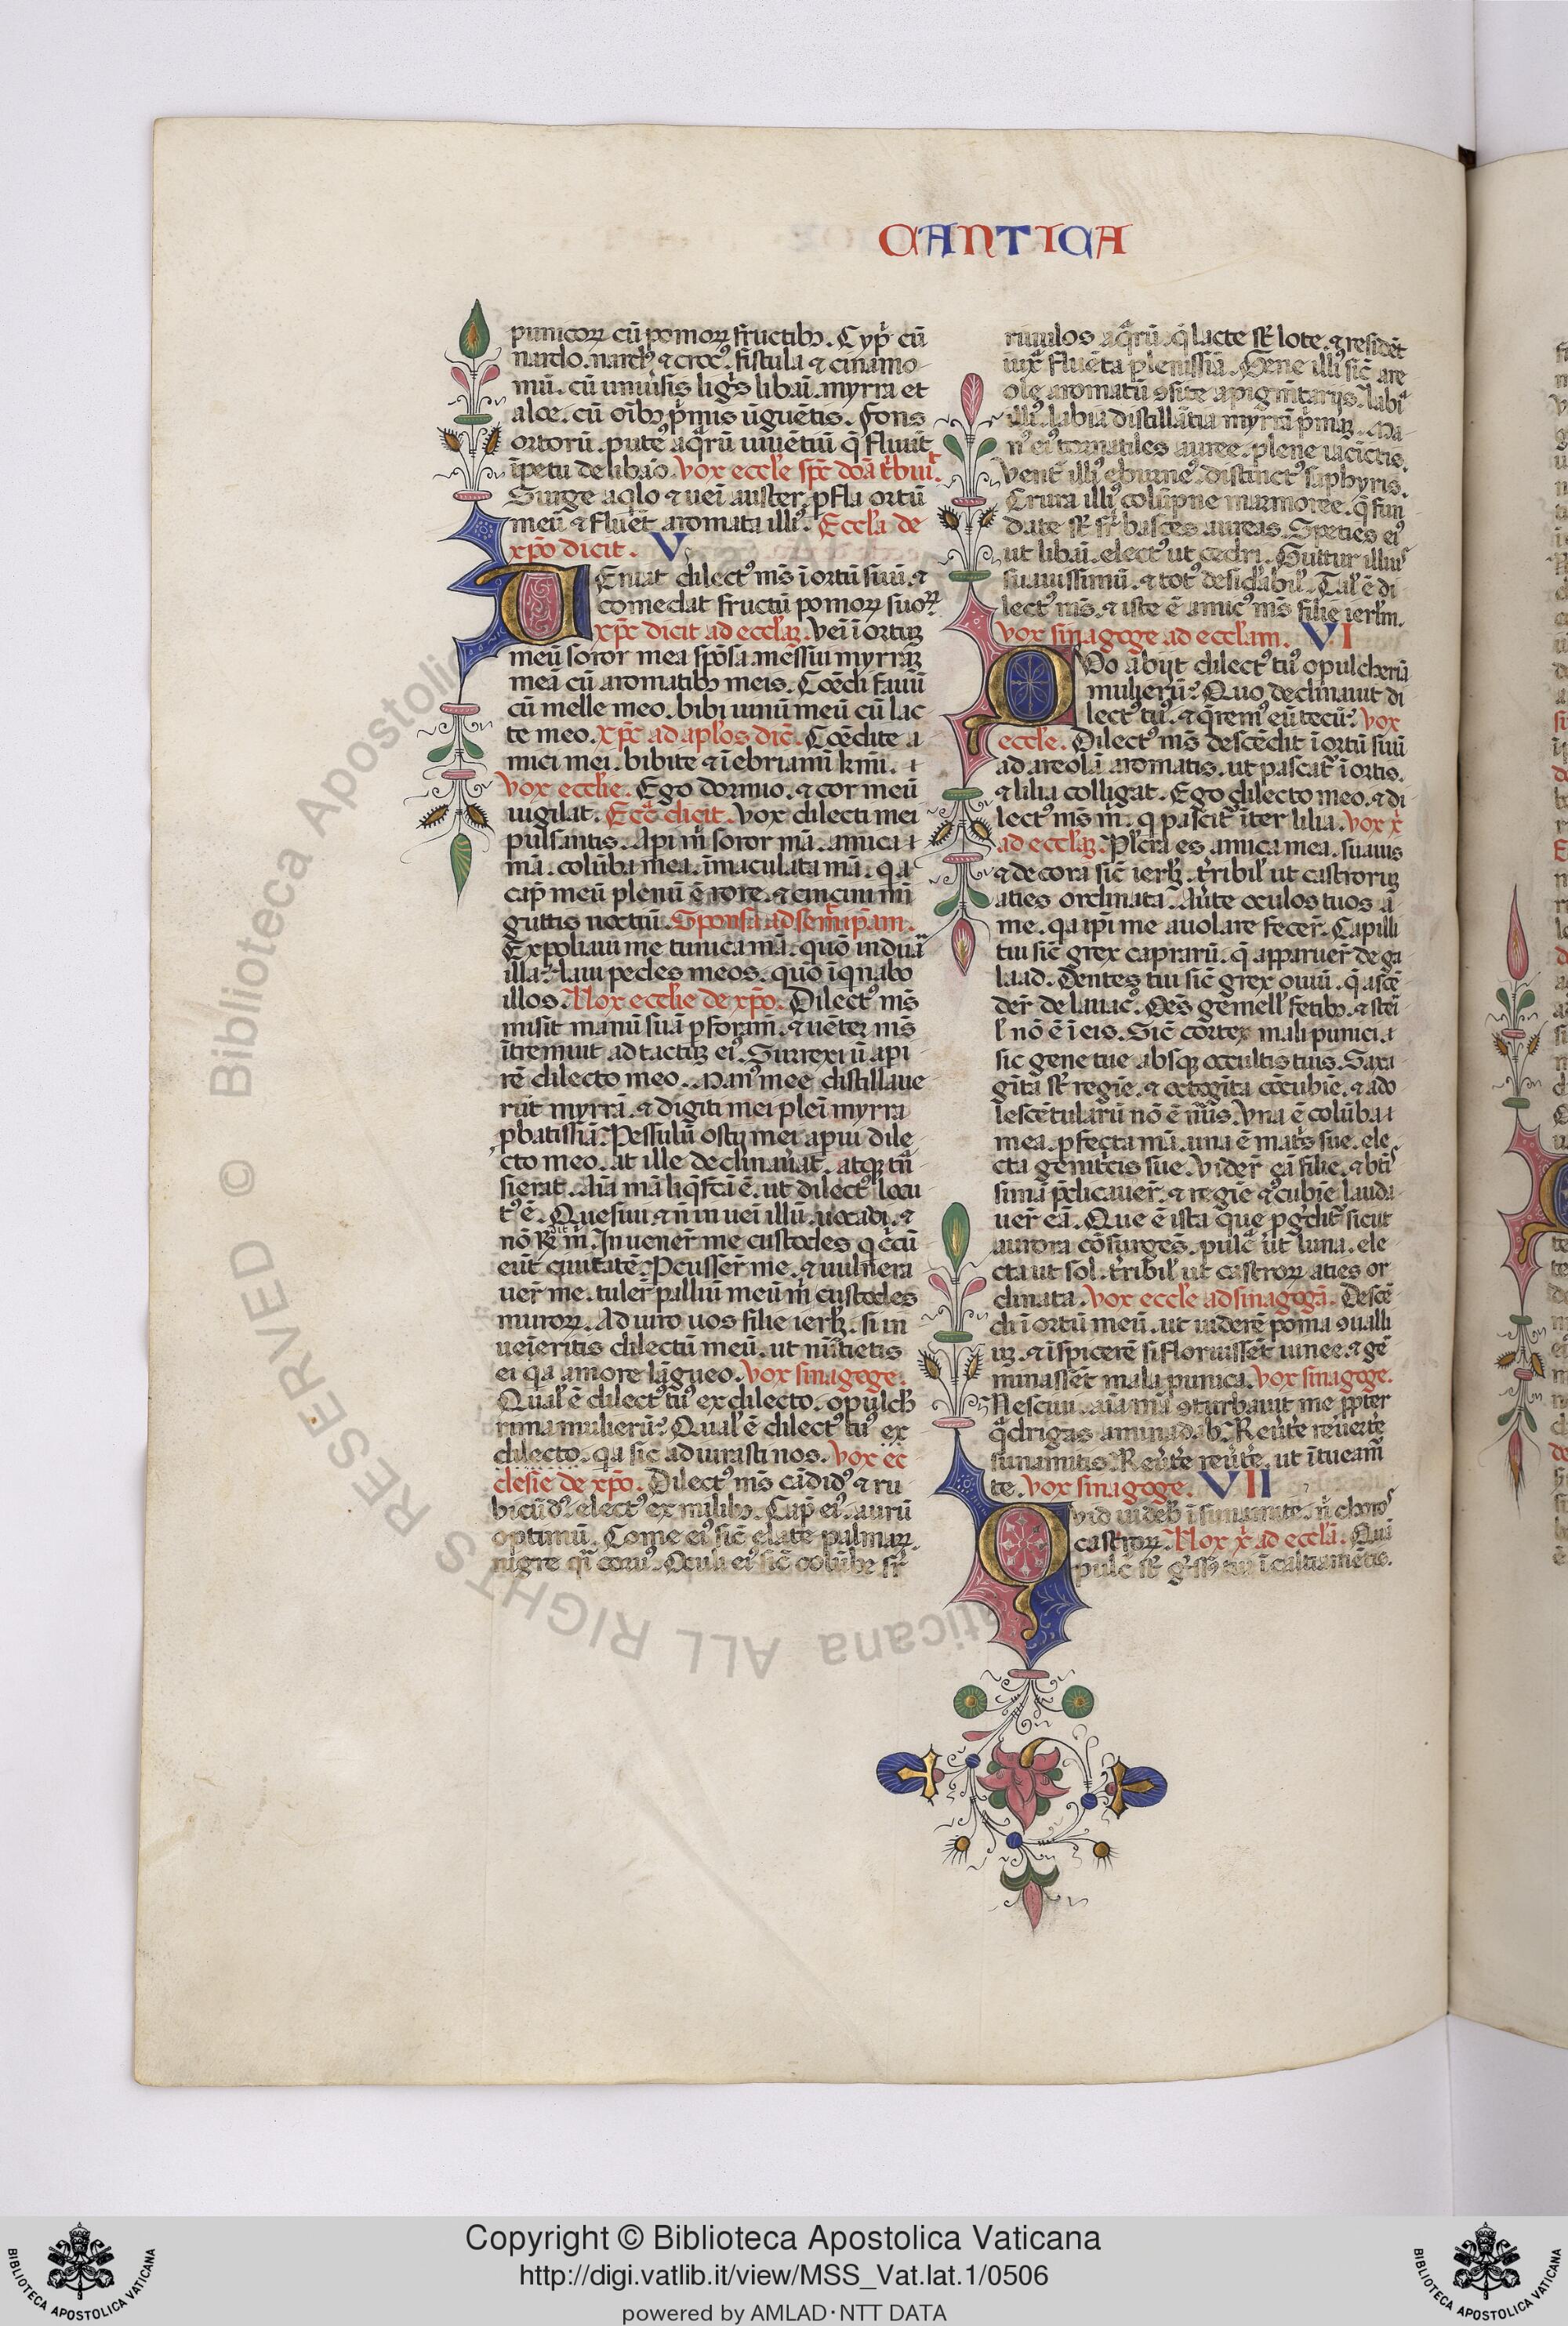 CANTICA
punicoꝝ cū pomoꝝ fructibꝫ. Cypͥ cū
nardo. nardꝰ & crocꝰ. fistula & cinamo-
mū. cū uniuͥsis lignͥs libāi. myrra et
aloe. cū oībꝫ pͥmis ūguētis. Fons
ortorū. puteꝰ aqͣrū uiuētiū q̄ fluūt
īpetu de libāo. vox eccl'e
Surge aqͥlo & uēi auster. ꝑfla ortū
meū & fluēt aromata illiꝰ. Eccl'a de
xp̄o dicit. V.
Veniat dilectꝰ m̄s ī ortū suū. &
comedat fructū pomoꝝ suoꝝ.
xp̄c dicit ad eccl'aꝫ. veī ī ortuꝫ
meū soror mea spōsa. messui myrraꝫ
meā cū aromatibꝫ meis. Cōedi fauū
cū melle meo. bibi uinū meū cū lac-
te meo. xp̄c ad apl'os dic̄. Cōedite a-
mici mei. bibite & ī ebriamī k̄mī.
vox eccl'ie. Ego dormio. & cor meū
uigilat. dicit. vox dilecti mei
pulsantis. Api m̄ soror mā. amica
mā. colūba mea. īmaculata mā. qͥa
cap̄ meū plenū ē rore. & cincini mī
guttis noctiū. Sponsa ad semͭip̄am.
Expoliaui me tunica mā. quō induā
illa? laui pedes meos. quō īqͥnabo
illos. Vox eccl'ie de xp̄o. Dilectꝰ m̄s
misit manū suā ꝑ foram̄. & uēteꝫ m̄s
ītremuit ad tactuꝫ eiꝰ. Surrexi ū api-
rē dilecto meo. manꝰ mee distillaue
rūt myrrā. & digiti mei pleī myrra
ꝓbatissīa. Pessulū ostij mei apui dile-
cto meo. at ille declinauͥat. atqꝫ tnͣ-
sierat. Aīa mā liqͤfcā ē. ut dilectꝰ locu
tꝰ ē. Quesiui & n̄ inueī illū. uocaui. &
nō m̄. Inuener̄ me custodes q cͥcū
eūt ciuitatē. Pcusser̄ me. & uulnera
uer̄ me. tuler̄ palliū meū m̄ custodes
muroꝝ. Adiuro uos filie ierlꝫ. si in
ueīeritis dilectū meū. ut nūtietis
ei qͥa amore lāgueo. vox sinagoge.
Qual' ē dilectꝰ tūꝰ ex dilecto. o pulch
rima mulierū? Qual' ē dilectꝰ tuꝰ ex
dilecto. qͥa sic adiurasti nos. vox ec
clesie de xp̄o. Dilectꝰ m̄s cādidꝰ & ru
bicūdꝰ. electꝰ ex milibꝫ. Cap̄ eiꝰ. aurū
optimū. Come eiꝰ sic̄ elate palmaꝝ.
nigre qͣi coruꝰ. Oculi eiꝰ sic̄ colūbe sr̄
riuulos aqͣrū. q̄ lacte sr̄ lote. & residēt
iuxͣ fluēta plenissīa. Gene illiꝰ sic̄ are
ole aromatū ꝯsite a pigm̄tarijs. labiͣ
illiꝰ. labia distillātia myrrā pͥmaꝫ. Ma-
nꝰ eiꝰ tornatiles auree. plene iacīctis.
Ventͬ illiꝰ eburneꝰ. distinctꝰ saphyris.
Crura illiꝰ colūpne marmoree. q̄ fun
date sr̄ sr̄ bases aureas. Species eiꝰ
ut libāi. electꝰ ut cedri. Guttur illiuꝰ
suauissimū. & totꝰ desidͣabil'. Tal' ē di
lectꝰ m̄s. & iste ē amicꝰ m̄s filie ierl'm.
vox sinagoge ad eccl'am. VI
Quo abijt dilectꝰ tuꝰ o pulcherīa
mulierū? Quo declinauit di
lectꝰ tuꝰ. & qͣremꝰ eū tecū? vox
eccl'e. Dilectꝰ m̄s descēdit ī ortū suū
ad areolā aromatis. ut pascatͬ ī ortis.
& lilia colligat. Ego dilecto meo. & di
lectꝰ m̄s m̄. q pascitͬ īter lilia. vox xͥ
ad eccl'aꝫ. Pl'cra es amica mea. suauis
& decora sic̄ ierlꝫ. tͬribil' ut castroruꝫ
aties ordinata. Auͥte oculos tuos a
me. qͥa ip̄i me auolare fecer̄. Capilli
tui sic̄ grex caprarū. q̄ apparuer̄ de ga
laad. Dentes tui sic̄ grex ouiū. q̄ ascē
der̄ de lauacͦ. Oēs gemell' fetibꝫ. & stei
l' nō ē ī eis. Sic̄ cortex mali punici
sic gene tue absqꝫ occultis tuis. Sexa
gīta sr̄ regīe. & octogīta cōcubie. & ado
lescētularū nō ē nūͥs. Vna ē colūba
mea. ꝑfecta mā. una ē matͥs sue. ele
cta genitͥcis sue. vider̄ eā filie. & btī
simā p̄dicauer̄. & regīe & ꝯcubīe lauda
uer̄ eā. Que ē ista que ꝓgͤditͬ sicut
aurora cōsurges. pulcͣ ut luna. ele
cta ut sol. tͬribil' ut castroꝝ aties or
dinata. vox eccl'e ad sinagogā. Descē
di ī ortū meū. ut uiderē poma ꝯualli
uꝫ. & īspicerē si floruissēt uinee. & gē
minassēt mala punica. vox sinagoge.
Nesciui. aīa mā ꝯturbauit me ꝓpter
qͣdrigas aminadab. Reuͥte reuerte
sunamitis. Reuͥte reuͥte. ut ītueam̄
te. vox sinagoge. VII
Quid uideb' ī sunamite. n̄ choroꝰ
castroꝝ. Vox xͥ ad eccl'ā. Quā
pulcͥ sr̄ gͤssꝰ tui ī calciamētis.
© Biblioteca Apostolica Vaticana ALL RIGHTS RESERVED
Copyright © Biblioteca Apostolica Vaticana
http://digi.vatlib.it/view/MSS_Vat.lat.1/0506
powered by AMLAD·NTT DATA
BIBLIOTECA APOSTOLICA VATICANA
BIBLIOTECA APOSTOLICA VATICANA